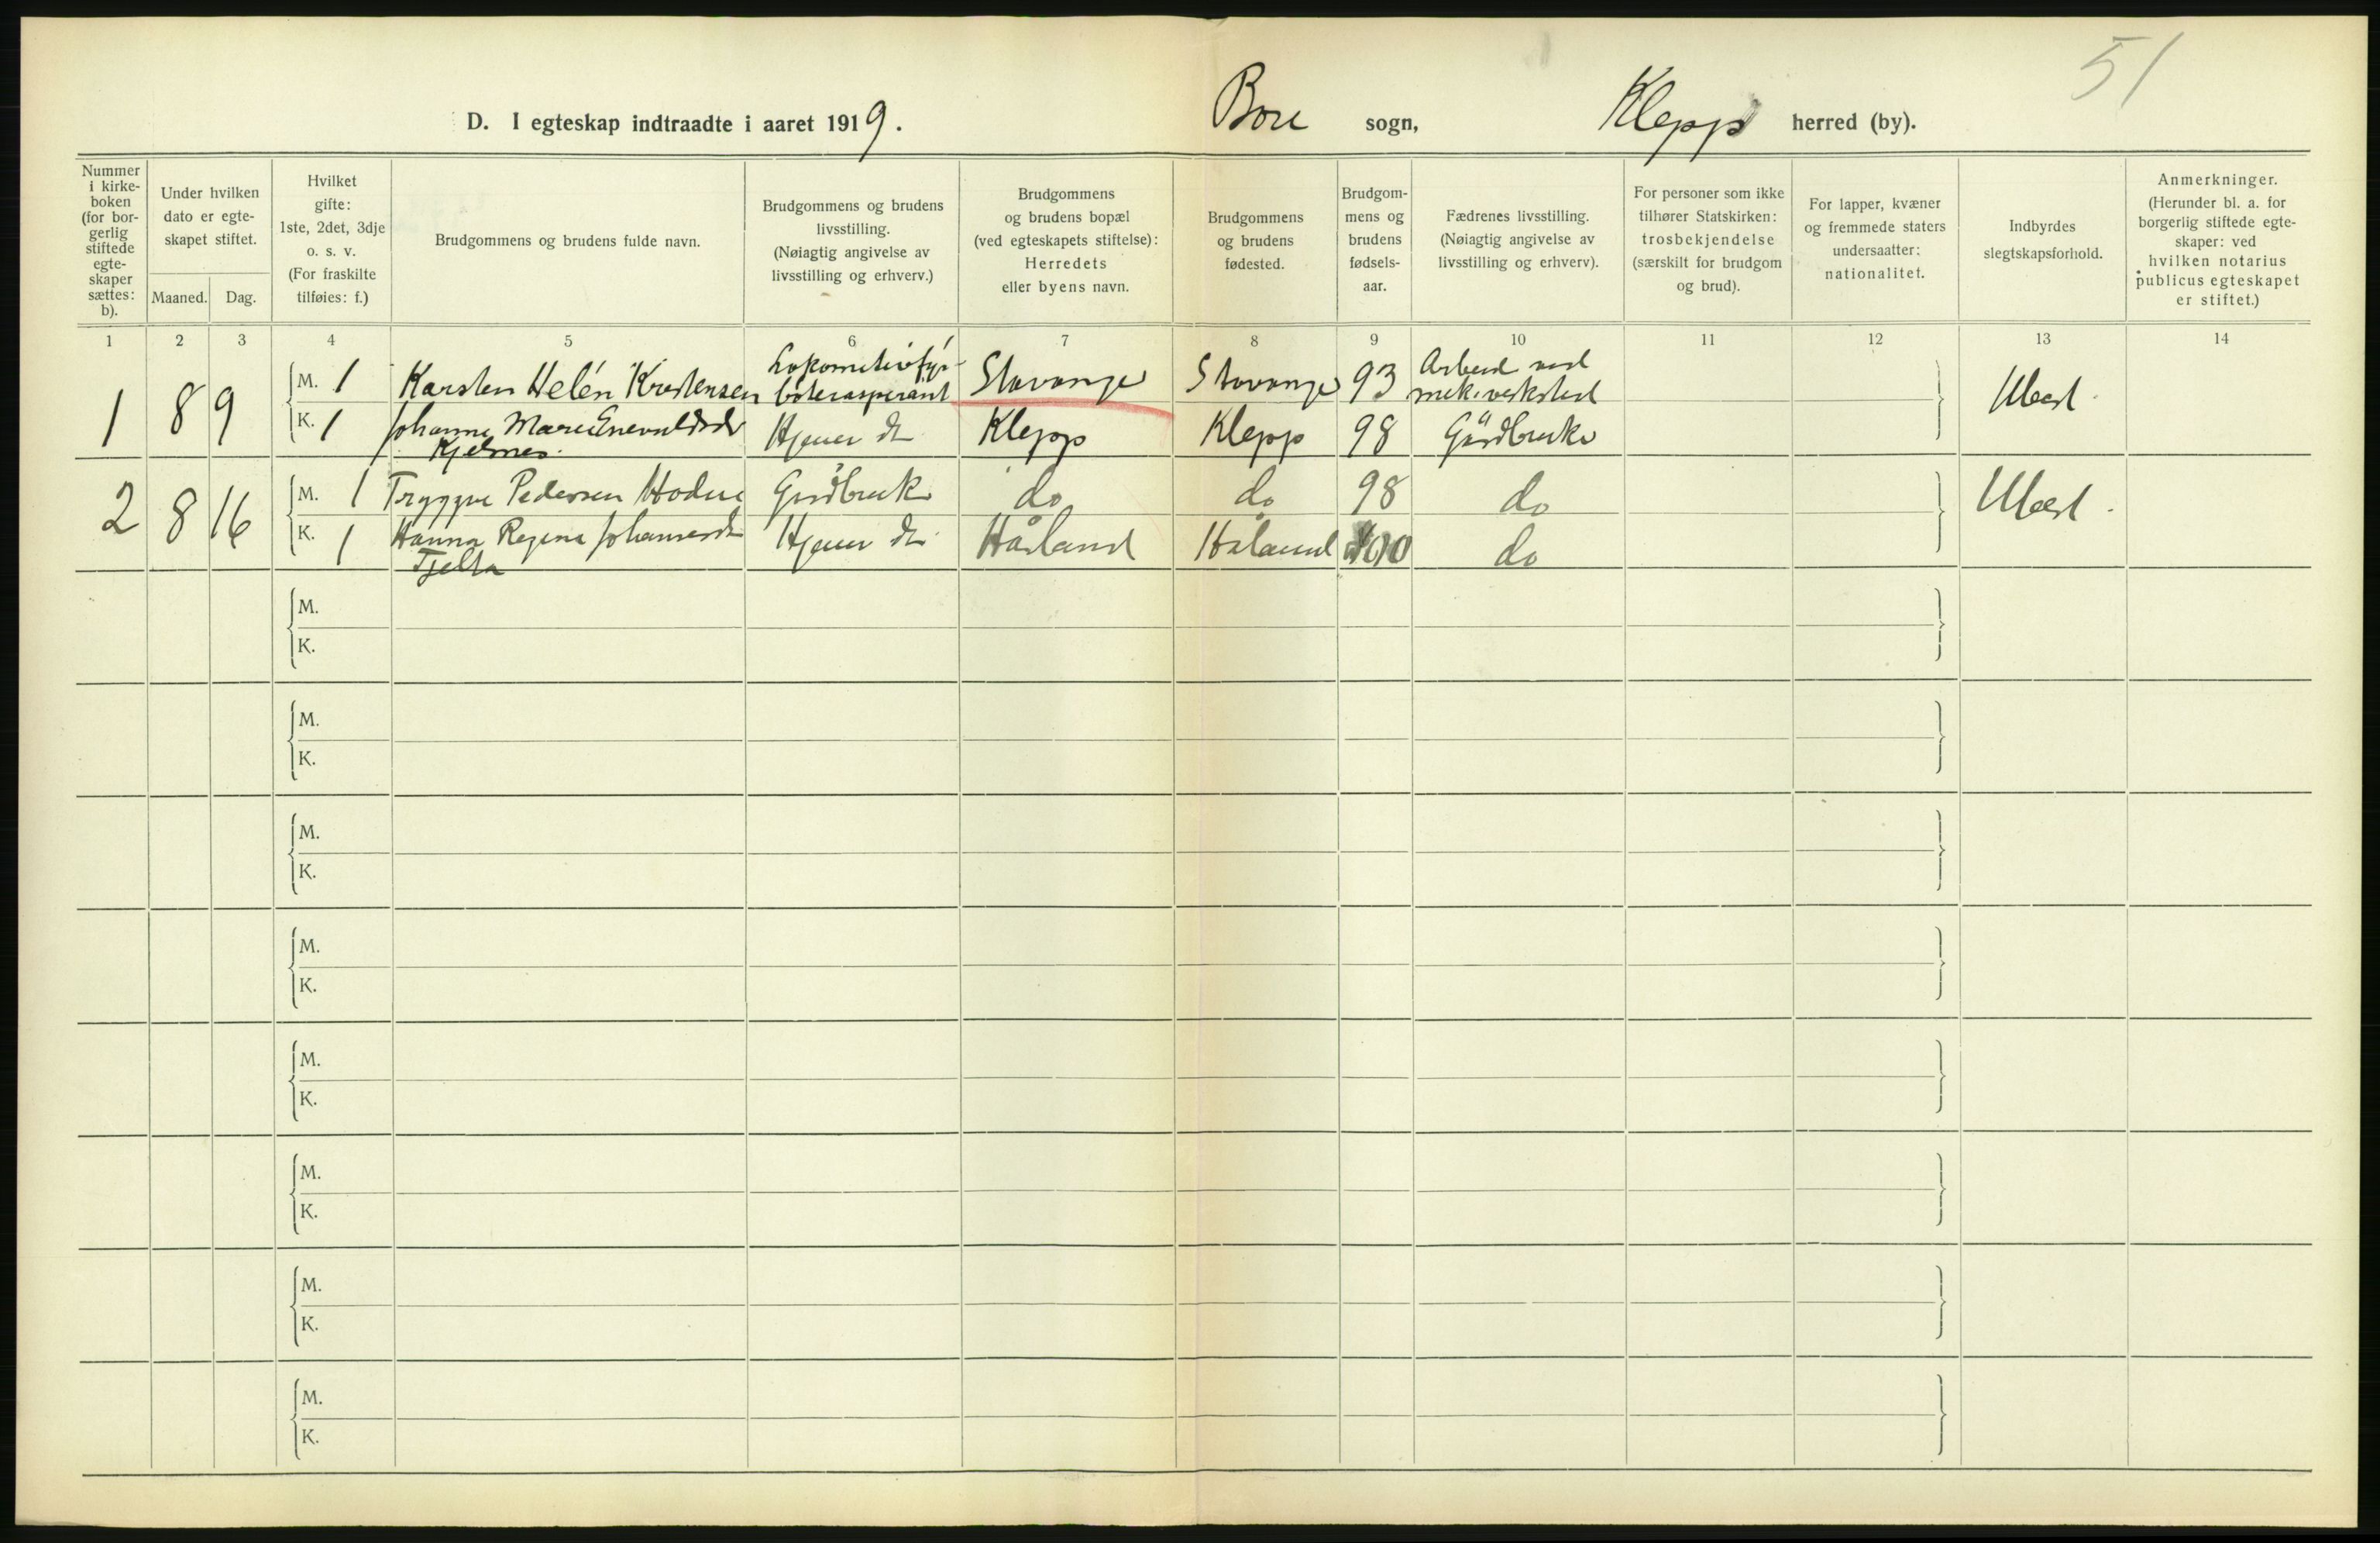 51
D. I egteskap indtraadte i aaret 1919. Bore sogn, Klepp herred (by).
Nummer i kirke-boken (for bor-gerlig stiftede egte-skaper sættes: b).
Under hvilken dato er egte-skapet stiftet.
Maaned. Dag.
Hvilket gifte: 1ste, 2det, 3dje o. s. v. (For fraskilte tilføies: f.)
Brudgommens og brudens fulde navn.
Brudgommens og brudens livsstilling. (Nøiagtig angivelse av livsstilling og erhverv.)
Brudgommens og brudens bopæl (ved egteskapets stiftelse): Herredets eller byens navn.
Brudgommens og brudens fødested.
Brudgom-mens og brudens fødsels-aar.
Fædrenes livsstilling. (Nøiagtig angivelse av livsstilling og erhverv).
For personer som ikke tilhører Statskirken: trosbekjendelse (særskilt for brudgom og brud).
For lapper, kvæner og fremmede staters undersaatter: nationalitet.
Indbyrdes slegtskapsforhold.
Anmerkninger. (Herunder bl. a. for borgerlig stiftede egte-skaper: ved hvilken notarius publicus egteskapet er stiftet.)
1 2 3 4 5 6 7 8 9 10 11 12 13 14
1 8 9 M. 1 Karsten Helén Kristensen Lokomotivfyr-bøteraspirant Stavanger Stavanger 93 Arbeid ved mek. verksted Ubesl.
K. 1 Johanne Marie Enevaldsdr Kjelnes. Hjeme dtr Klepp Klepp 98 Gårdbruker
2 8 16 M. 1 Tryggve Pedersen Hodne Gårdbruk do do 98 do Ubesl.
K. 1 Hanna Regine Johannesdtr Tjelta Hjeme dtr Håland Håland 00 do
M.
K.
M.
K.
M.
K.
M.
K.
M.
K.
M.
K.
M.
K.
M.
K.